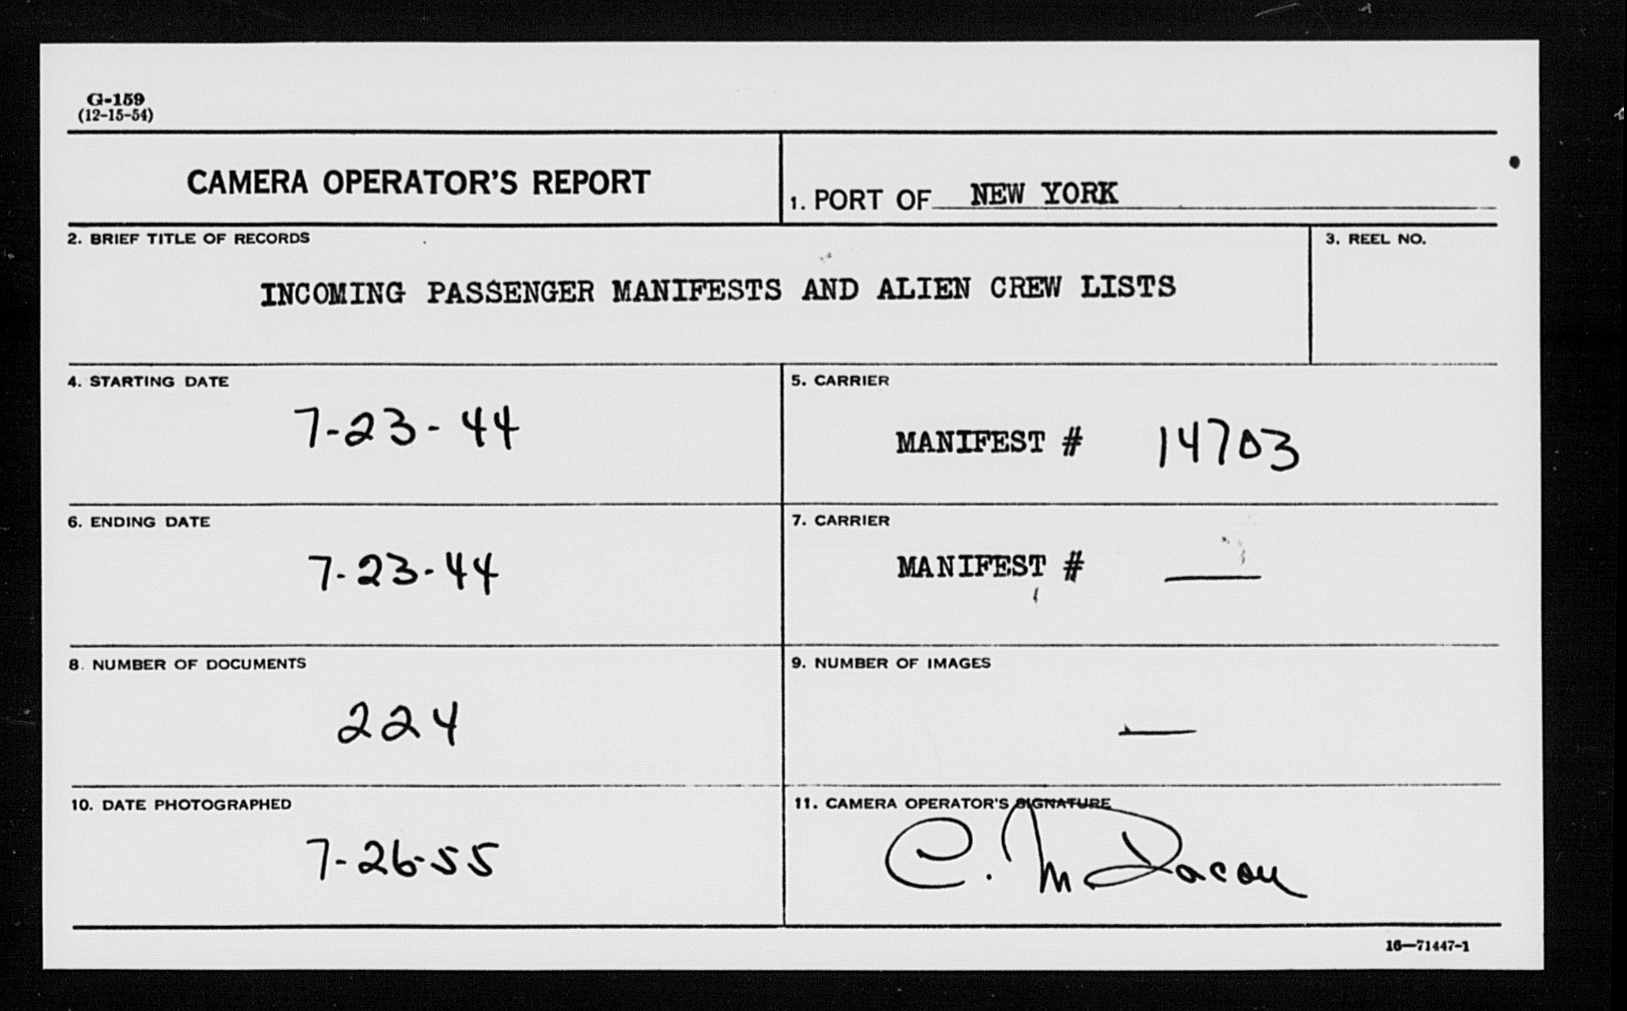 G-159
(12-15-54)
CAMERA OPERATOR'S REPORT
1. PORT OF NEW YORK
2. BRIEF TITLE OF RECORDS
3. REEL NO.
INCOMING PASSENGER MANIFESTS AND ALIEN CREW LISTS
4. STARTING DATE
5. CARRIER
7-23-44
MANIFEST # 14703
6. ENDING DATE
7. CARRIER
7-23-44
MANIFEST # —
8. NUMBER OF DOCUMENTS
9. NUMBER OF IMAGES
224
—
10. DATE PHOTOGRAPHED
11. CAMERA OPERATOR'S SIGNATURE
7-26-55
C.
16—71447-1